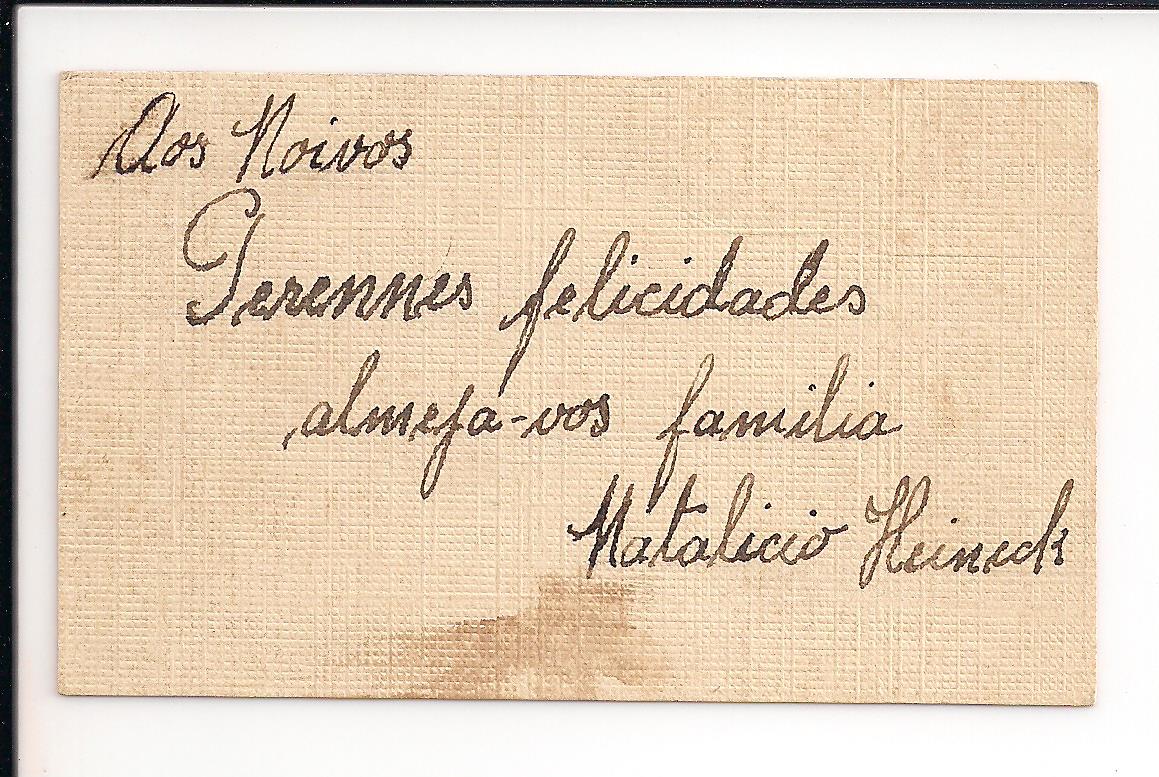 Aos Noivos
Perennes felicidades
almeja-vos familia
Natalicio Heineck